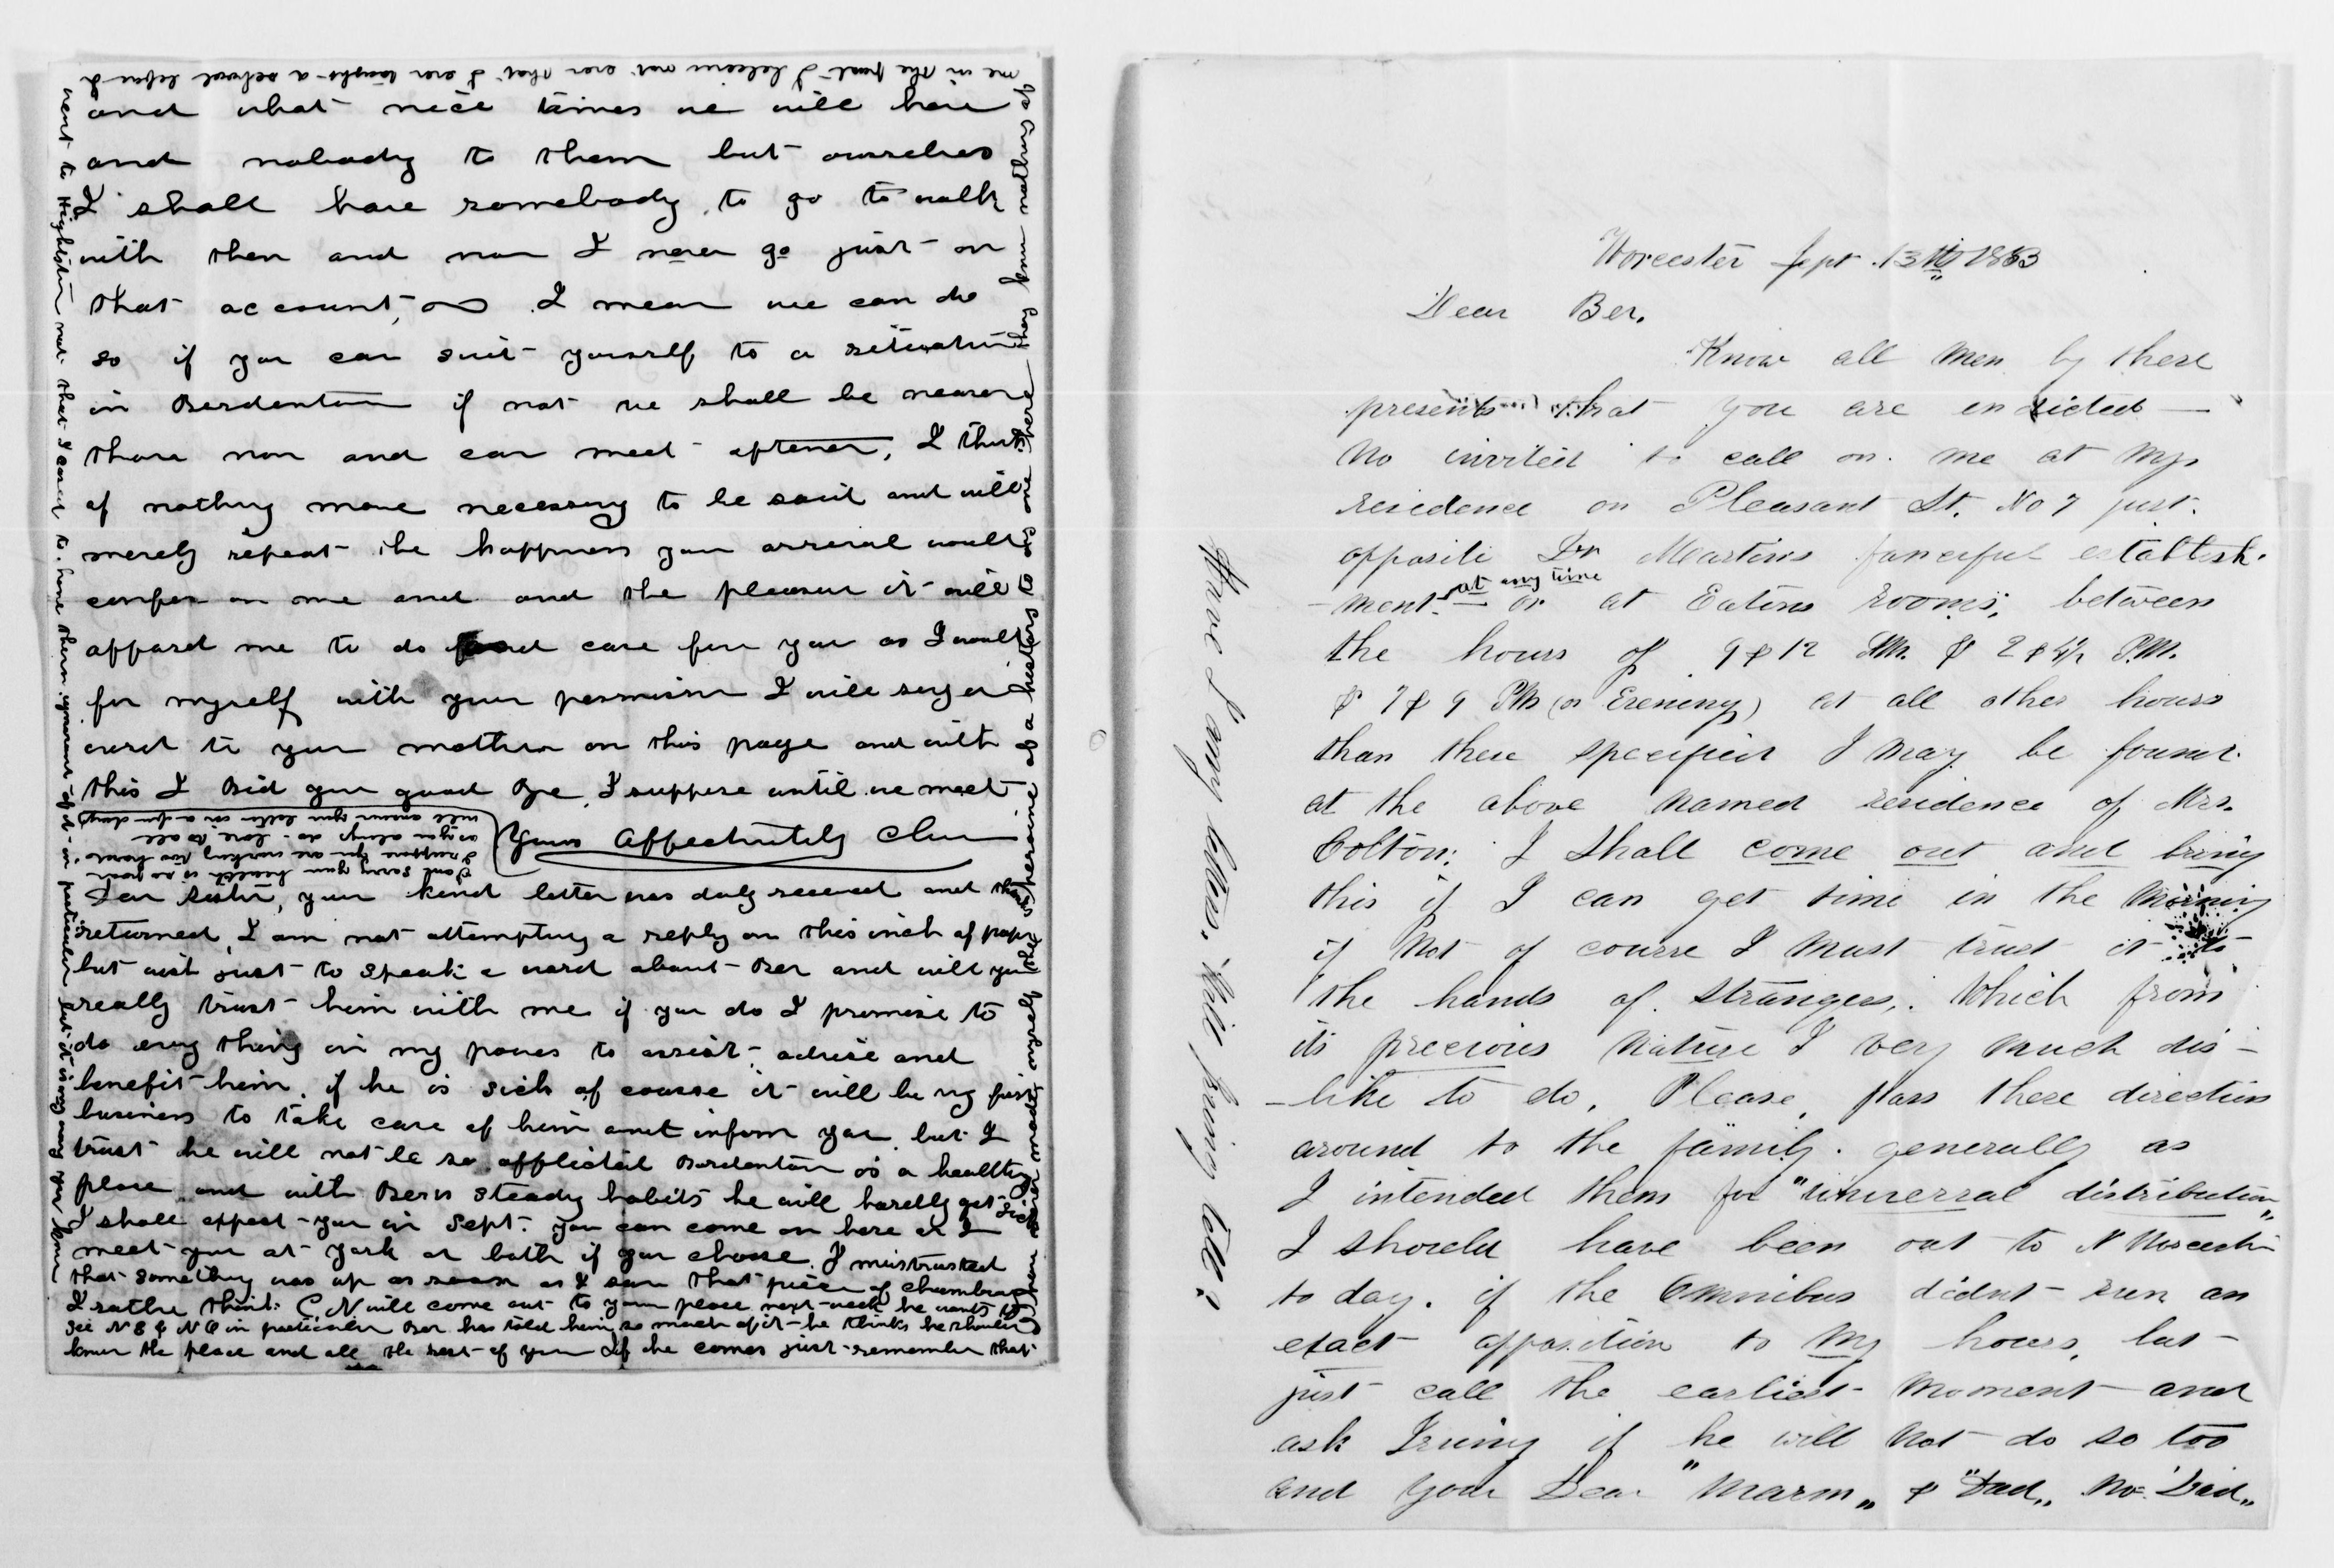 and what nice times we will have
and nobody to them but ourselves
I shall have somebody to go to walk
with then and now I never go just on
that account, I mean we can do
so if you can suit yourself to a situation
in Bordentown if not we shall be nearer
than now and can meet oftener, I think
of nothing more necessary to be said and will
merely repeat the happiness your arrival would
confer on me and and the pleasure it will
afford me to do and care for you as I would
for myself with your permission I will say a
word to your mother on this page and with
this I Bid you good Bye, I suppose until we meet
Yours Affectinately Clara
I am sorry your health is so poor
I suppose you are working too hard
as you always do - love to all
will answer your letter in a few days
Dear Sister, your kind letter was duly received and this
returned, I am not attempting a reply on this inch of paper
but wish just to speak a word about Ber and will you
really trust him with me if you do I promise to
do every thing in my power to assist - advise and
benefit him, if he is sick of course it will be my first
business to take care of him and inform you, but I
trust he will not be so afflicted Bordentown is a healthy
place and with Bers steady habits he will hardly get sick
I shall expect you in Sept. you can come on here or I
meet you at York or both if you choose. I mistrusted
that something was up as soon as I saw that piece of
I rather think C N will come out to your place next week he wants to
see N B & N O in particular Ber has told him so much of it he thinks he should
know the place and all the rest of you If he comes just remember that
they know nothing of
me in the past I believe not even that I ever taught a school before I
went to Hightstown not that I cared to have them ignorant of it in particular but it is my way you know
Worcester Sept. 13th 1853
Dear Ber.
Know all Men by these
presents that you are indicted —
No invited to call on me at my
residence on Pleasant St. No 7 just
opposite Dr Martins fanciful establish-
-ment at any time or at Eatons rooms, between
the hours of 9 & 12 AM. & 2 & 4½ P.M.
& 7 & 9 PM (or Evening) at all other hours
than these specified I may be found
at the above named residence of Mrs.
Colton; I shall come out and bring
this if I can get time in the Morning
if Not of course I Must trust it to
the hands of strangers, Which from
its precious Nature I very Much dis-
-like to do, Please, pass these direction
around to the family generally as
I intended them for "universal distribution"
I should have been out to N Worcester
to day. if the Omnibus didnt run an
exact opposition to My hours, but
just call the earliest Moment and
ask Irving if he will Not do so too
and your Dear "Marm" & "Dad" No. "Dad"
Have I any letters, Will Irving tell?